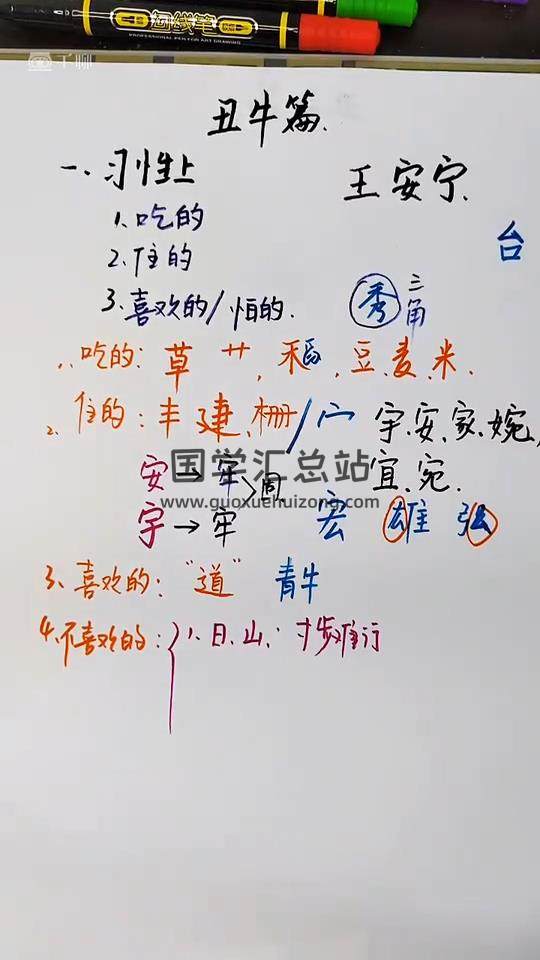 勾线笔
PROFESSIONAL PEN FOR ART DRAWING
千聊
丑牛篇.
一、习性上
王安宁.
1.吃的
2.住的
台
3.喜欢的/怕的.
秀 三角
1.吃的: 草 艹, 禾, 豆.麦.米.
2.住的: 丰 建.栅/宀 宇.安.家.婉,
宜.宛.
安→牢>同.
宇→牢
宏 雄 弘
国学汇总站
www.guoxuehuizong.com
3.喜欢的: "道" 青牛
4.不喜欢的: 1.日.山: 寸步难行